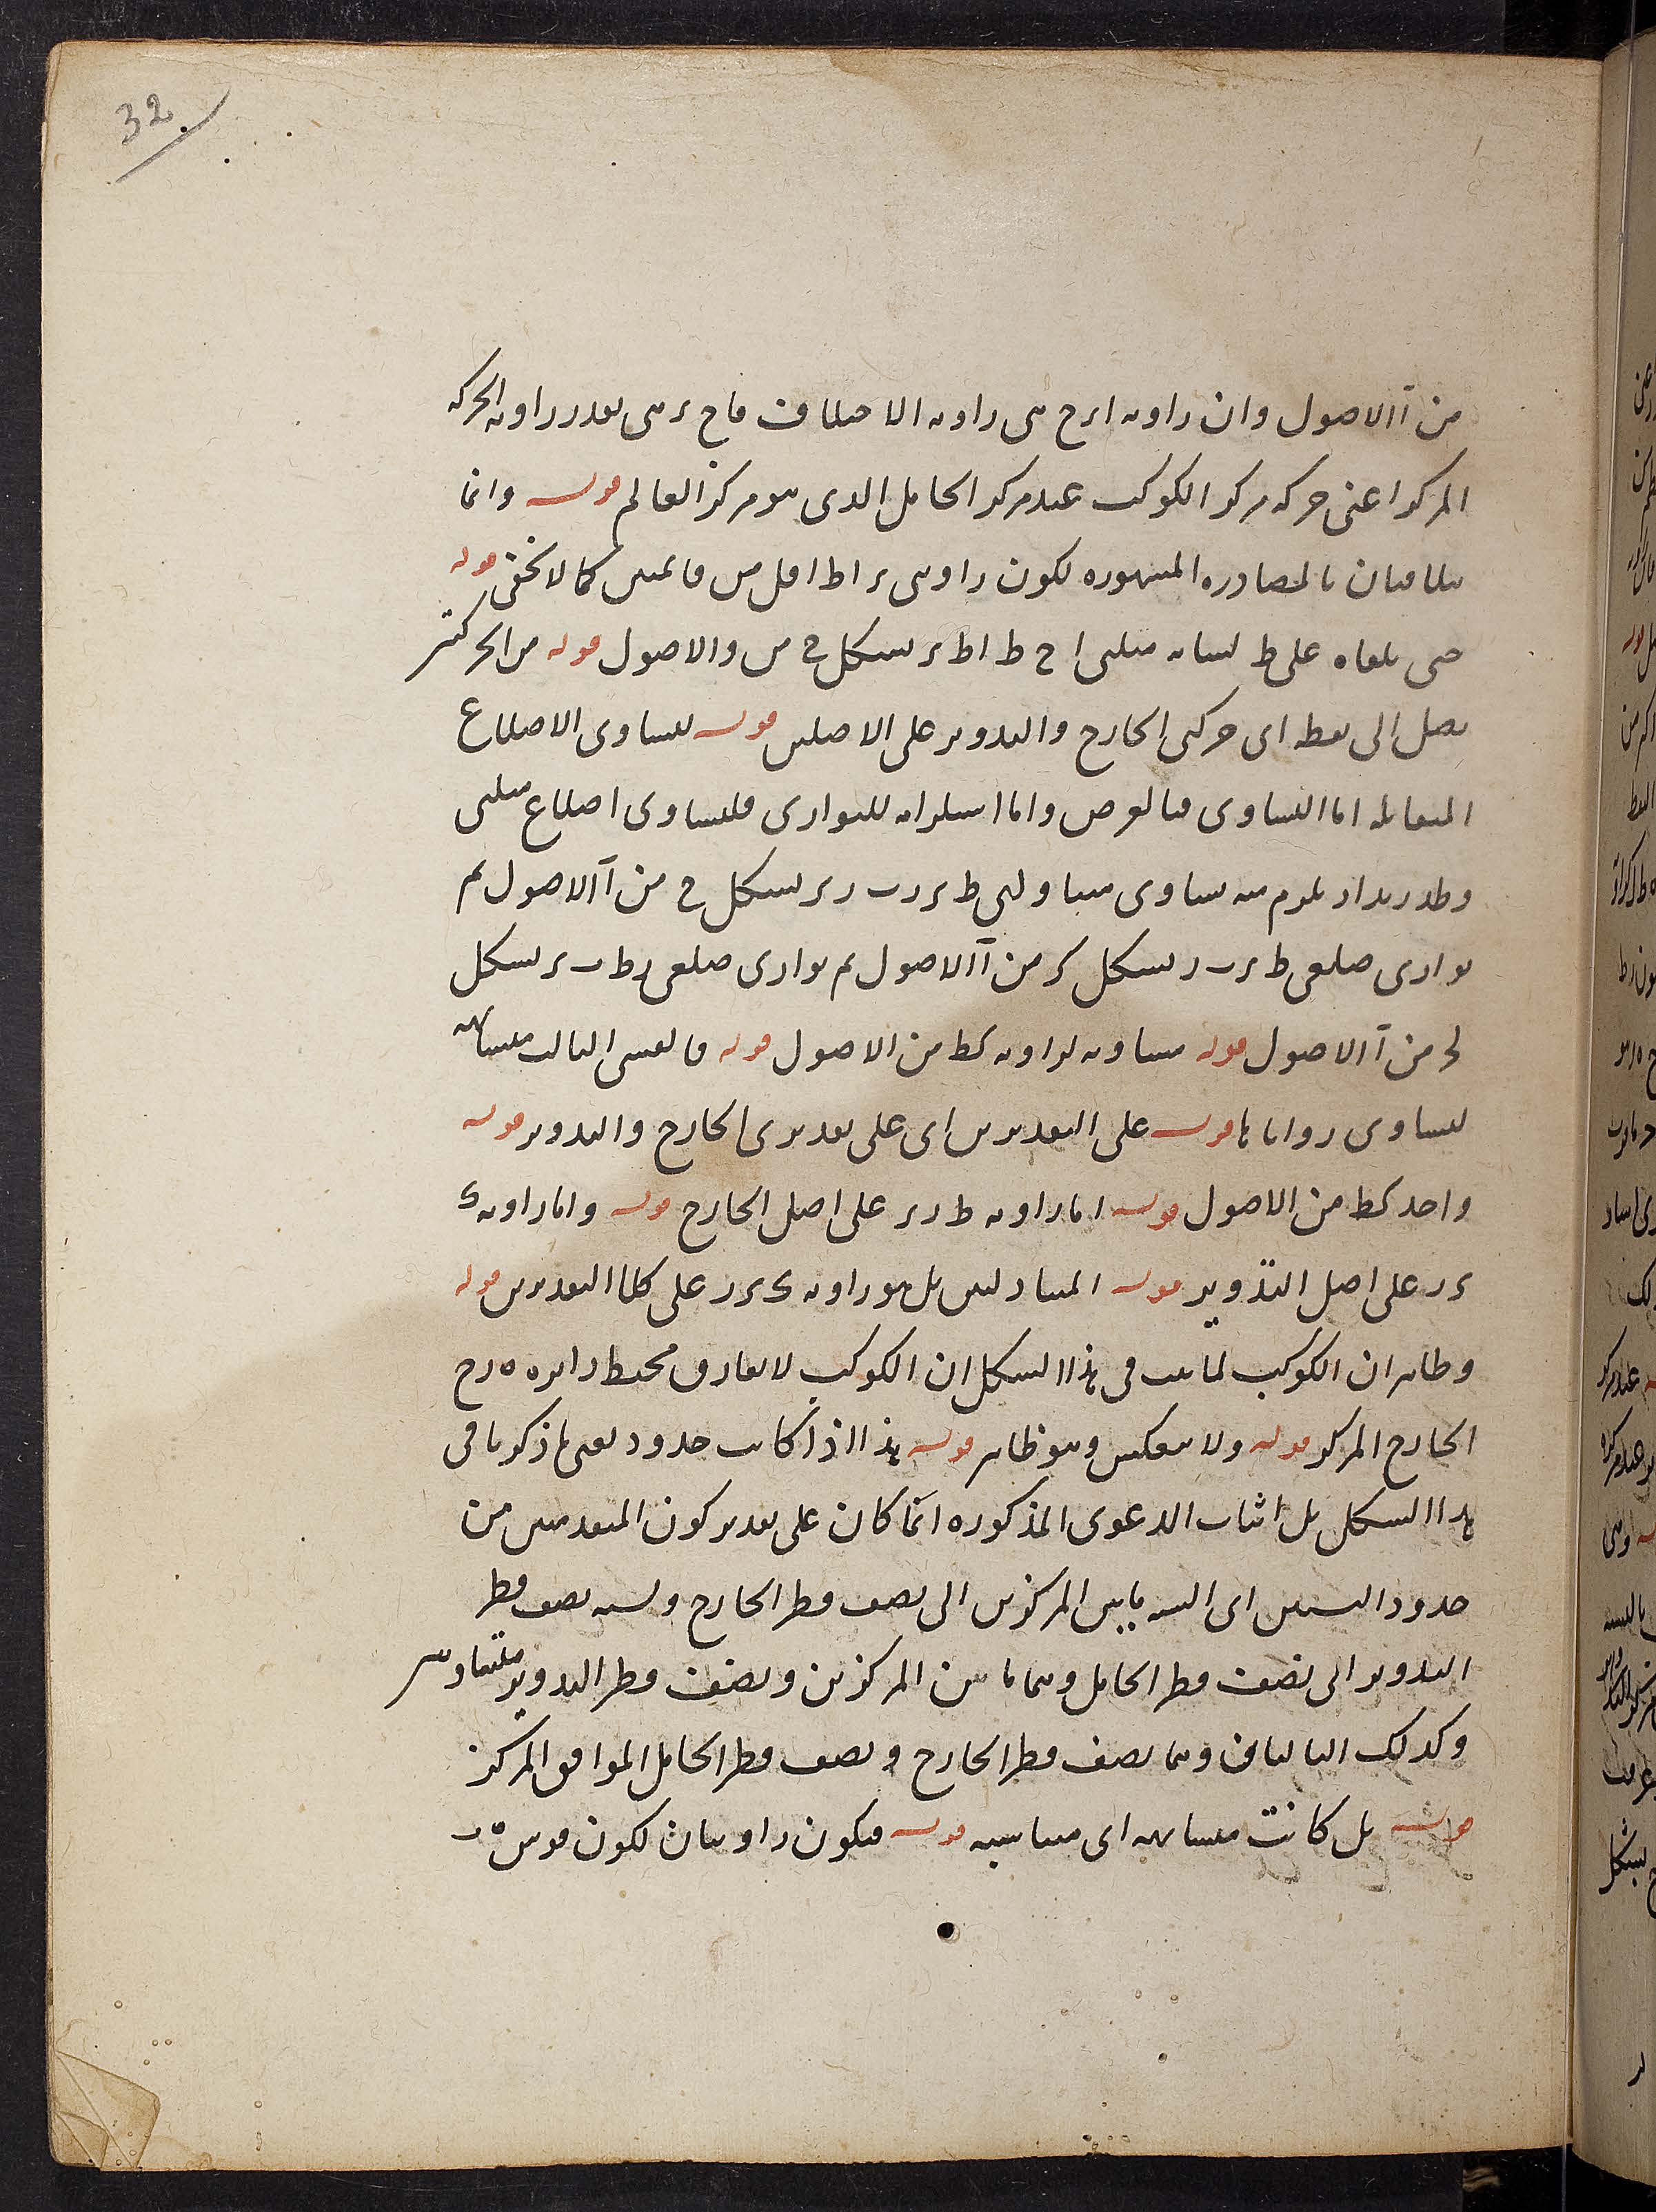 32
من آ الاصول وان زاوية ا ر ح هى زاوية الاختلاف فاح ر هى بقدر زاوية الحركة
المركز اعنى حركة مركز الكوكب عند مركز الحامل الذى هو مركز العالم قوله وانما
يتلاقيان بالمصادرة المشهورة لكون زاويتى ر ا ط اقل من قائمتين كما لا يخفى قوله
حتى يلقاه على ط لتشابه مثلثى ا ح ط ا ط ر بشكل من والاصول قوله من الحركتين
يصل الى نقطة اى حركتى الخارج والتدوير على الاصلين قوله لتساوى الاضلاع
المتقابلة اما التساوى فبالفرض واما استلزامه للتوازى فلتساوى اضلاع مثلثى
يلزم منه تساوى ط ر ب ر ر بشكل ح من آ الاصول ثم
توازى ضلعى ط ر ب ر بشكل كز من آ الاصول ثم توازى ضلعى ر ط ب ر بشكل
لح من آ الاصول قوله مساوية لزاوية كط من الاصول قوله فالقسى الثالث متشابهة
لتساوى زواياها قوله على التقديرين اى على تقديرى الخارج والتدوير قوله
واحد كط من الاصول قوله اما زاوية ط ر ر على اصل الخارج قوله واما زاوية ى
ر ر على اصل التدوير قوله المتبادلتين بل هو زاوية ى ر ر على كلا التقديرين قوله
وظاهر ان الكوكب لما ثبت فى هذا الشكل ان الكوكب لا يفارق محيط دايرة ه ر ح
الخارج المركز قوله ولا ينعكس وهو ظاهر قوله هذا اذا كانت حدود يعنى ما ذكرنا فى
هذا الشكل بل اثبات الدعوى المذكورة انما كان على تقدير كون المتقدمين من
حدود النسبتين اى النسبة ما بين المركزين الى نصف قطر الخارج ونسبة نصف قطر
التدوير الى نصف قطر الحامل وهما ما بين المركزين ونصف قطر التدوير متساويين
وكذلك التاليان وهما نصف قطر الخارج ونصف قطر الحامل الموافق المركز
قوله بل كانت متشابهة اى متناسبة قوله فيكون زاويتان لكون قوس ه ب